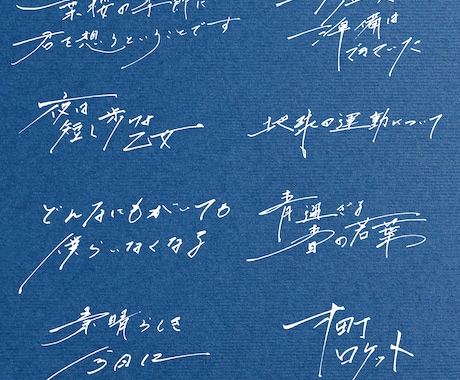 葉桜の季節に
君を想うということです
準備は
できていた
夜は
短し歩けよ
乙女
地球の運動について
どんなにもがいても
僕らいなくなる
青過ぎる
春の若葉
素晴らしき
今日に
下町
ロケット